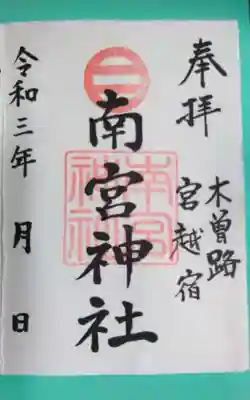 奉拝
木曽路
宮越宿
南宮神社
令和三年 月 日
二
南宮
神社